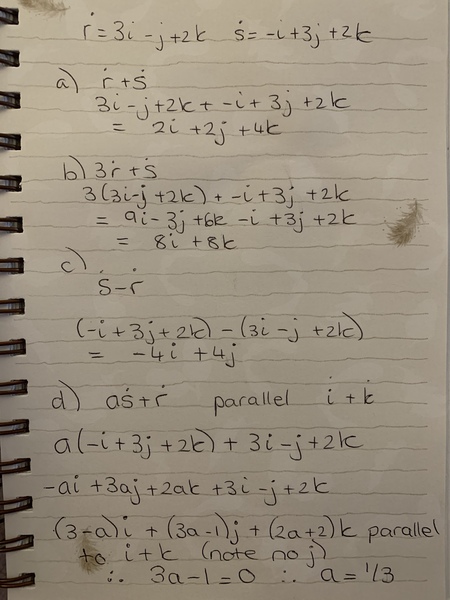 ṙ = 3i - j + 2k   ṡ = -i + 3j + 2k
a) ṙ + ṡ
3i - j + 2k + -i + 3j + 2k
= 2i + 2j + 4k
b) 3ṙ + ṡ
3(3i - j + 2k) + -i + 3j + 2k
= 9i - 3j + 6k - i + 3j + 2k
= 8i + 8k
c)
ṡ - ṙ
(-i + 3j + 2k) - (3i - j + 2k)
= -4i + 4j
d) aṡ + ṙ   parallel   i + k
a(-i + 3j + 2k) + 3i - j + 2k
-ai + 3aj + 2ak + 3i - j + 2k
(3-a)i + (3a-1)j + (2a+2)k parallel
to i + k (note no j)
∴ 3a - 1 = 0 ∴ a = 1/3